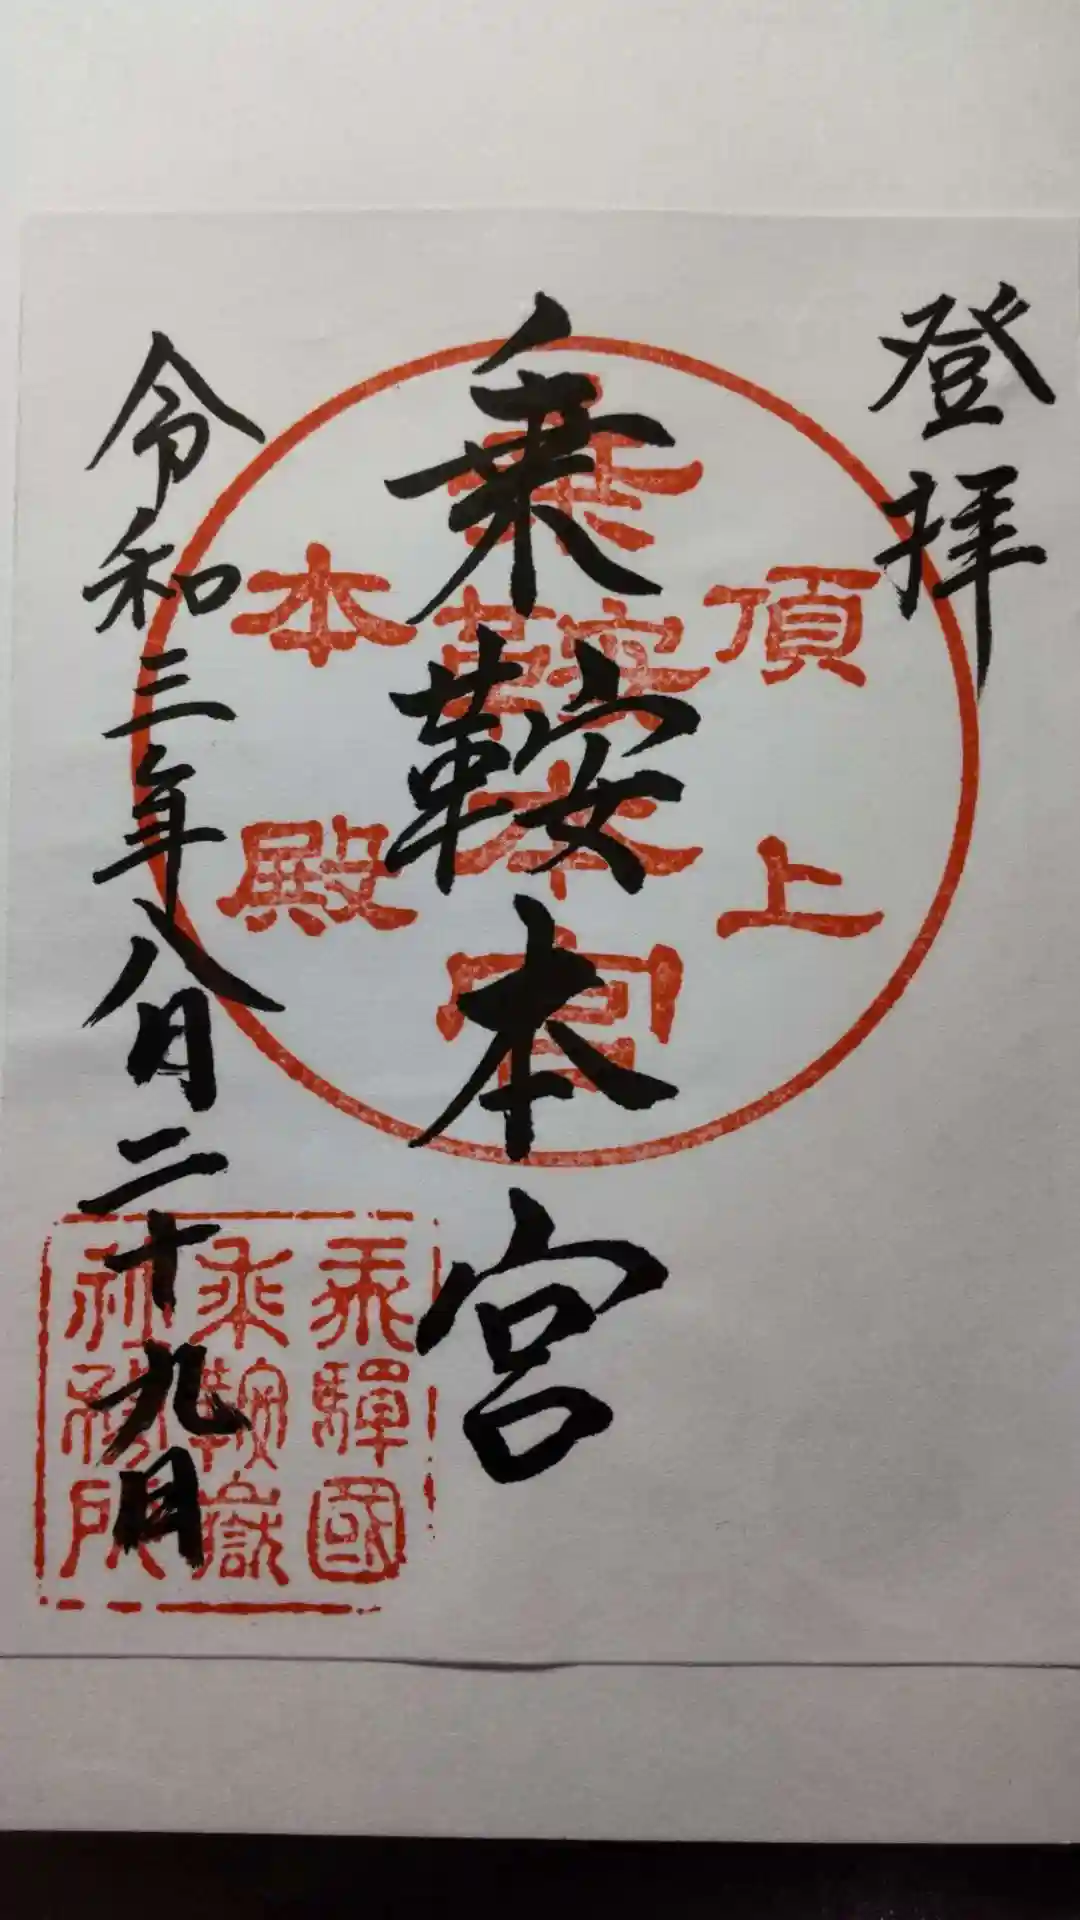 登拝
乗鞍本宮
令和三年八月二十九日
頂上
乗鞍本宮
本殿
飛驒國
乗鞍嶽
社務所